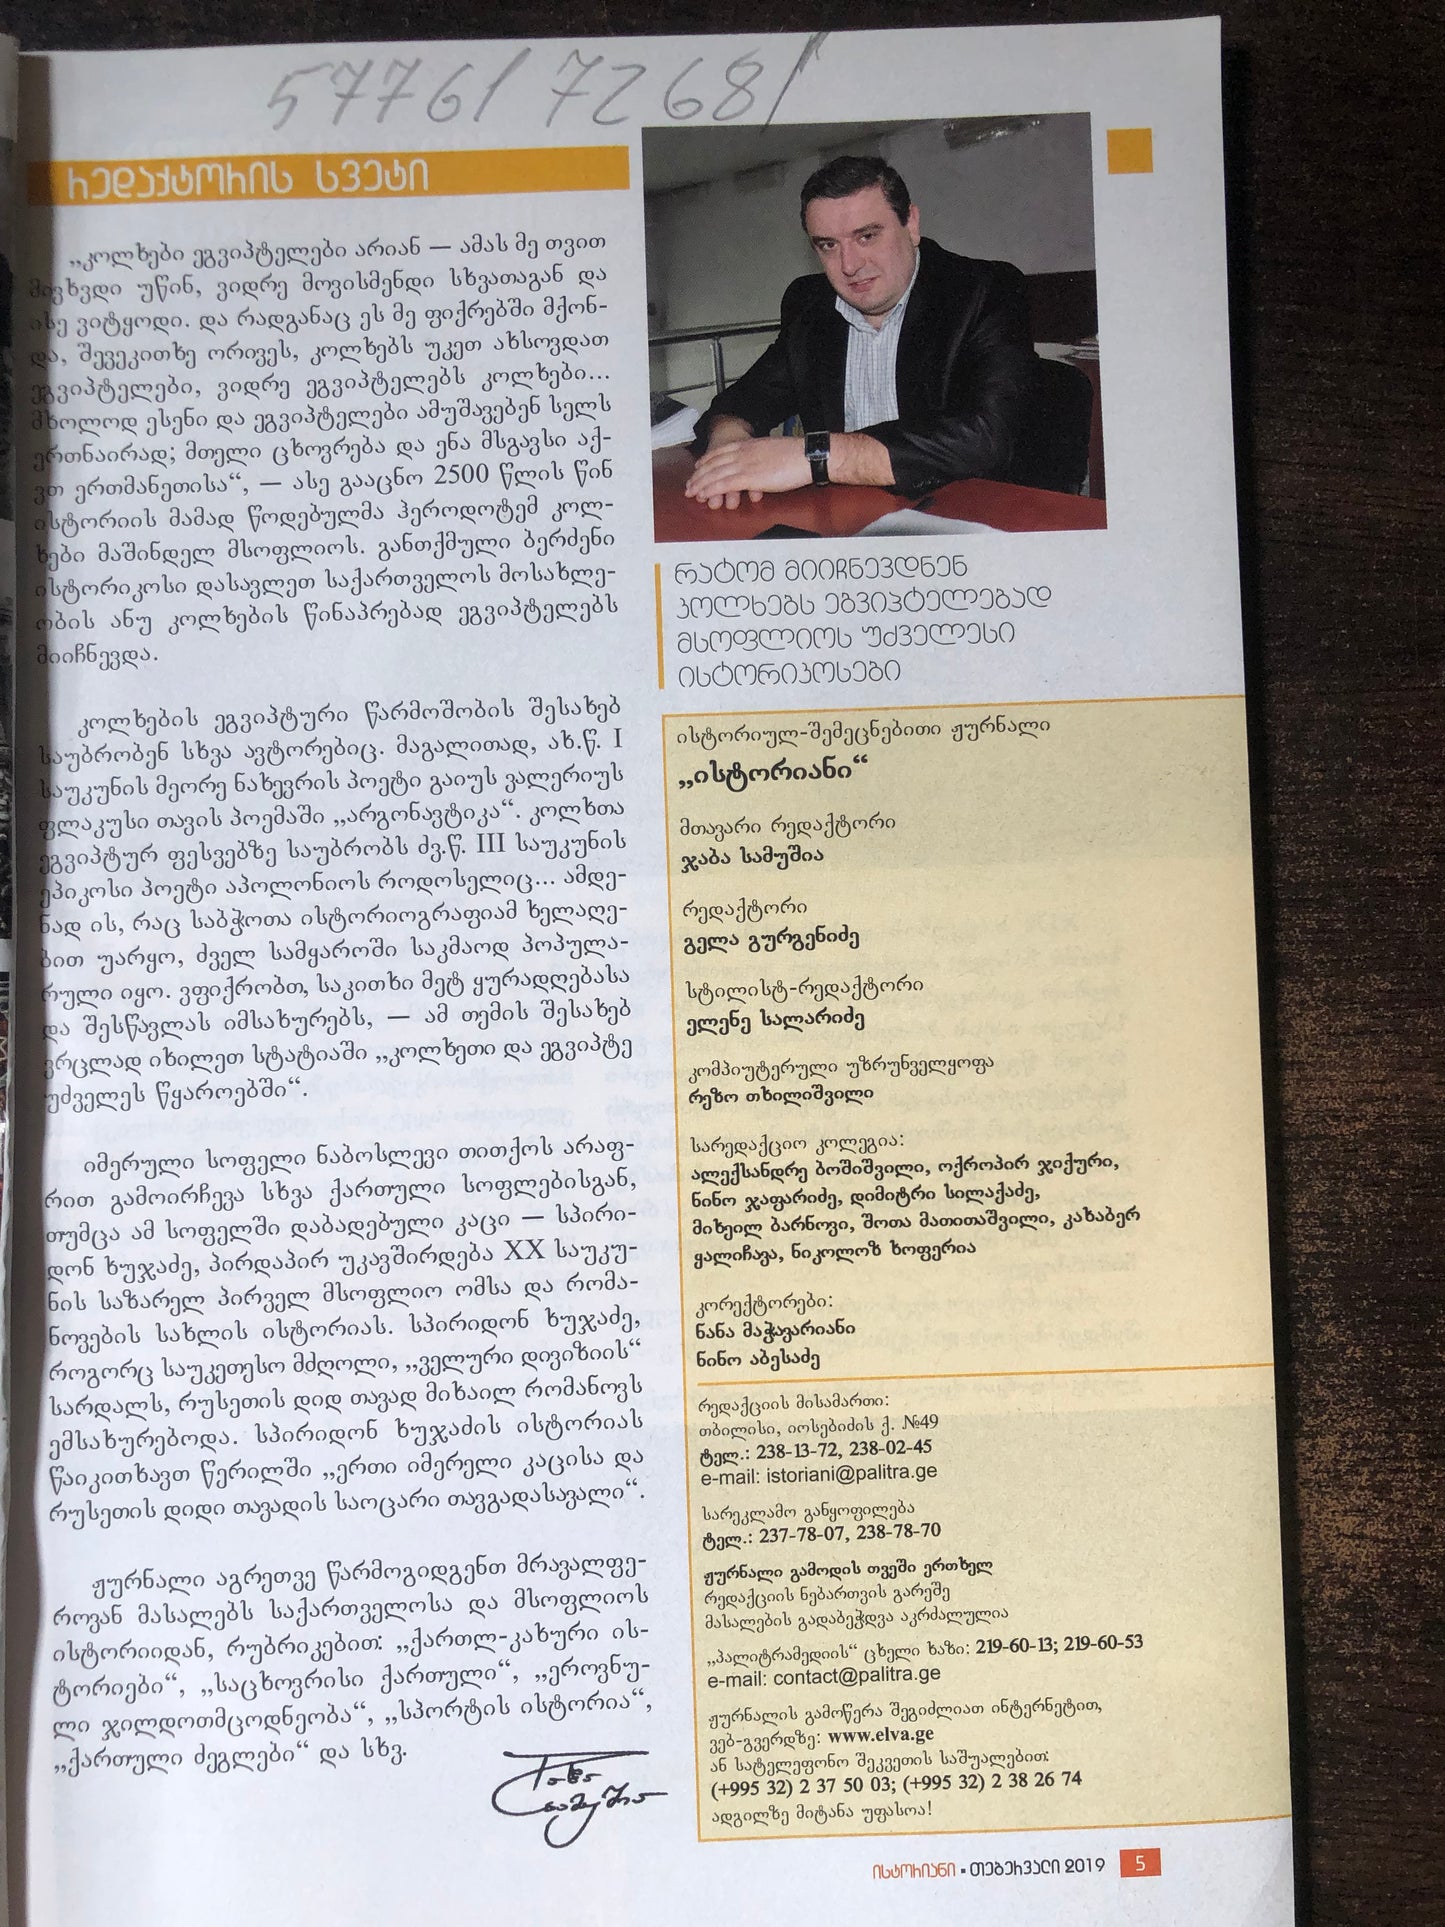 57761 7268/
რედაქტორის სვეტი
„კოლხები ეგვიპტელები არიან — ამას მე თვით
მივხვდი უწინ, ვიდრე მოვისმენდი სხვათაგან და
ისე ვიტყოდი. და რადგანაც ეს მე ფიქრებში მქონ-
და, შევეკითხე ორივეს, კოლხებს უკეთ ახსოვდათ
ეგვიპტელები, ვიდრე ეგვიპტელებს კოლხები...
მხოლოდ ესენი და ეგვიპტელები ამუშავებენ სელს
ერთნაირად; მთელი ცხოვრება და ენა მსგავსი აქ-
ვთ ერთმანეთისა“, — ასე გააცნო 2500 წლის წინ
ისტორიის მამად წოდებულმა ჰეროდოტემ კოლ-
ხები მაშინდელ მსოფლიოს. განთქმული ბერძენი
ისტორიკოსი დასავლეთ საქართველოს მოსახლე-
ობის ანუ კოლხების წინაპრებად ეგვიპტელებს
მიიჩნევდა.
კოლხების ეგვიპტური წარმოშობის შესახებ
საუბრობენ სხვა ავტორებიც. მაგალითად, ახ.წ. I
საუკუნის მეორე ნახევრის პოეტი გაიუს ვალერიუს
ფლაკუსი თავის პოემაში „არგონავტიკა“. კოლხთა
ეგვიპტურ ფესვებზე საუბრობს ძვ.წ. III საუკუნის
ეპიკოსი პოეტი აპოლონიოს როდოსელიც... ამდე-
ნად ის, რაც საბჭოთა ისტორიოგრაფიამ ხელაღე-
ბით უარყო, ძველ სამყაროში საკმაოდ პოპულა-
რული იყო. ვფიქრობთ, საკითხი მეტ ყურადღებასა
და შესწავლას იმსახურებს, — ამ თემის შესახებ
ვრცლად იხილეთ სტატიაში „კოლხეთი და ეგვიპტე
უძველეს წყაროებში“.
იმერული სოფელი ნაბოსლევი თითქოს არაფ-
რით გამოირჩევა სხვა ქართული სოფლებისგან,
თუმცა ამ სოფელში დაბადებული კაცი — სპირი-
დონ ხუჯაძე, პირდაპირ უკავშირდება XX საუკუ-
ნის საზარელ პირველ მსოფლიო ომსა და რომა-
ნოვების სახლის ისტორიას. სპირიდონ ხუჯაძე,
როგორც საუკეთესო მძღოლი, „ველური დივიზიის“
სარდალს, რუსეთის დიდ თავად მიხაილ რომანოვს
ემსახურებოდა. სპირიდონ ხუჯაძის ისტორიას
წაიკითხავთ წერილში „ერთი იმერელი კაცისა და
რუსეთის დიდი თავადის საოცარი თავგადასავალი“.
ჟურნალი აგრეთვე წარმოგიდგენთ მრავალფე-
როვან მასალებს საქართველოსა და მსოფლიოს
ისტორიიდან, რუბრიკებით: „ქართლ-კახური ის-
ტორიები“, „საცხოვრისი ქართული“, „ეროვნუ-
ლი ჯილდოთმცოდნეობა“, „სპორტის ისტორია“,
„ქართული ძეგლები“ და სხვ.
რატომ მიიჩნევდნენ
კოლხებს ეგვიპტელებად
მსოფლიოს უძველესი
ისტორიკოსები
ისტორიულ-შემეცნებითი ჟურნალი
„ისტორიანი“
მთავარი რედაქტორი
ჯაბა სამუშია
რედაქტორი
გელა გურგენიძე
სტილისტ-რედაქტორი
ელენე სალარიძე
კომპიუტერული უზრუნველყოფა
რეზო თხილიშვილი
სარედაქციო კოლეგია:
ალექსანდრე ბოშიშვილი, ოქროპირ ჯიქური,
ნინო ჯაფარიძე, დიმიტრი სილაქაძე,
მიხეილ ბარნოვი, შოთა მათითაშვილი, კახაბერ
ყალიჩავა, ნიკოლოზ ხოფერია
კორექტორები:
ნანა მაჭავარიანი
ნინო აბესაძე
რედაქციის მისამართი:
თბილისი, იოსებიძის ქ. №49
ტელ.: 238-13-72, 238-02-45
e-mail: istoriani@palitra.ge
სარეკლამო განყოფილება
ტელ.: 237-78-07, 238-78-70
ჟურნალი გამოდის თვეში ერთხელ
რედაქციის ნებართვის გარეშე
მასალების გადაბეჭდვა აკრძალულია
„პალიტრამედიის“ ცხელი ხაზი: 219-60-13; 219-60-53
e-mail: contact@palitra.ge
ჟურნალის გამოწერა შეგიძლიათ ინტერნეტით,
ვებ-გვერდზე: www.elva.ge
ან სატელეფონო შეკვეთის საშუალებით:
(+995 32) 2 37 50 03; (+995 32) 2 38 26 74
ადგილზე მიტანა უფასოა!
ჯაბა
სამუშია
ისტორიანი ▪ თებერვალი 2019 5